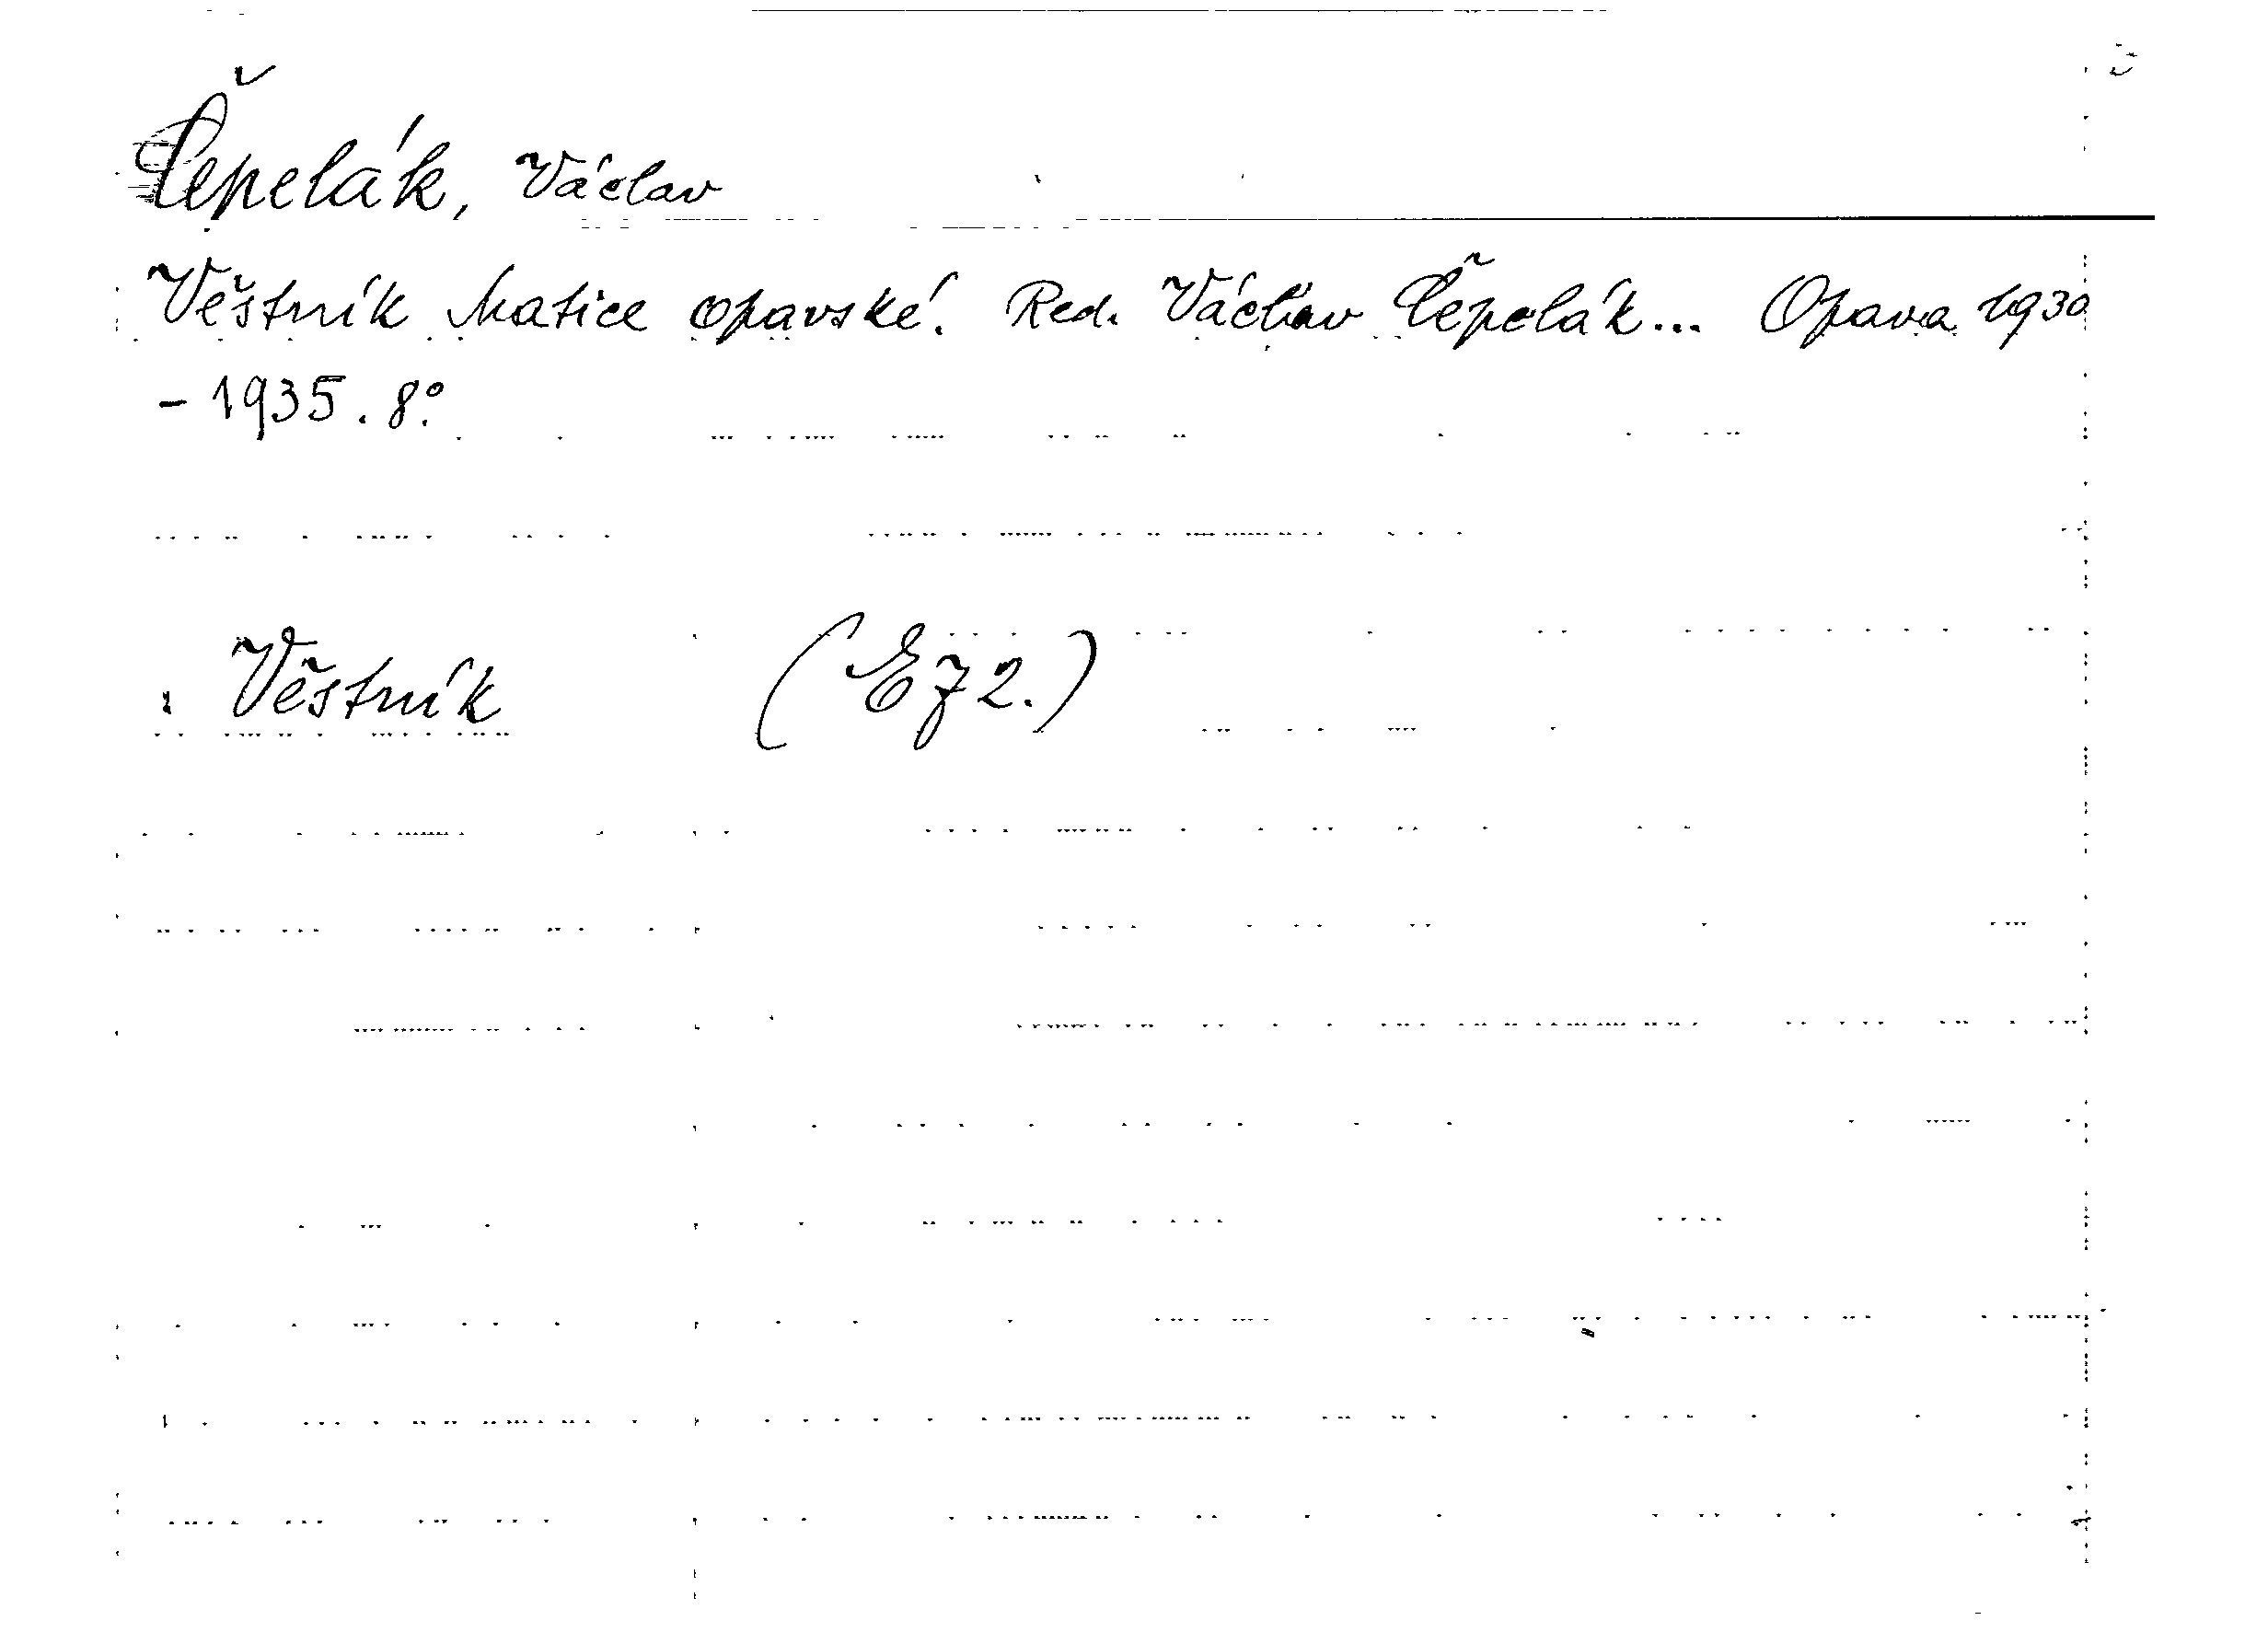 Čepelák, Václav
Věstník Matice opavské. Red. Václav Čepelák... Opava 1930
- 1935. 8°.
Věstník (Ež 2.)